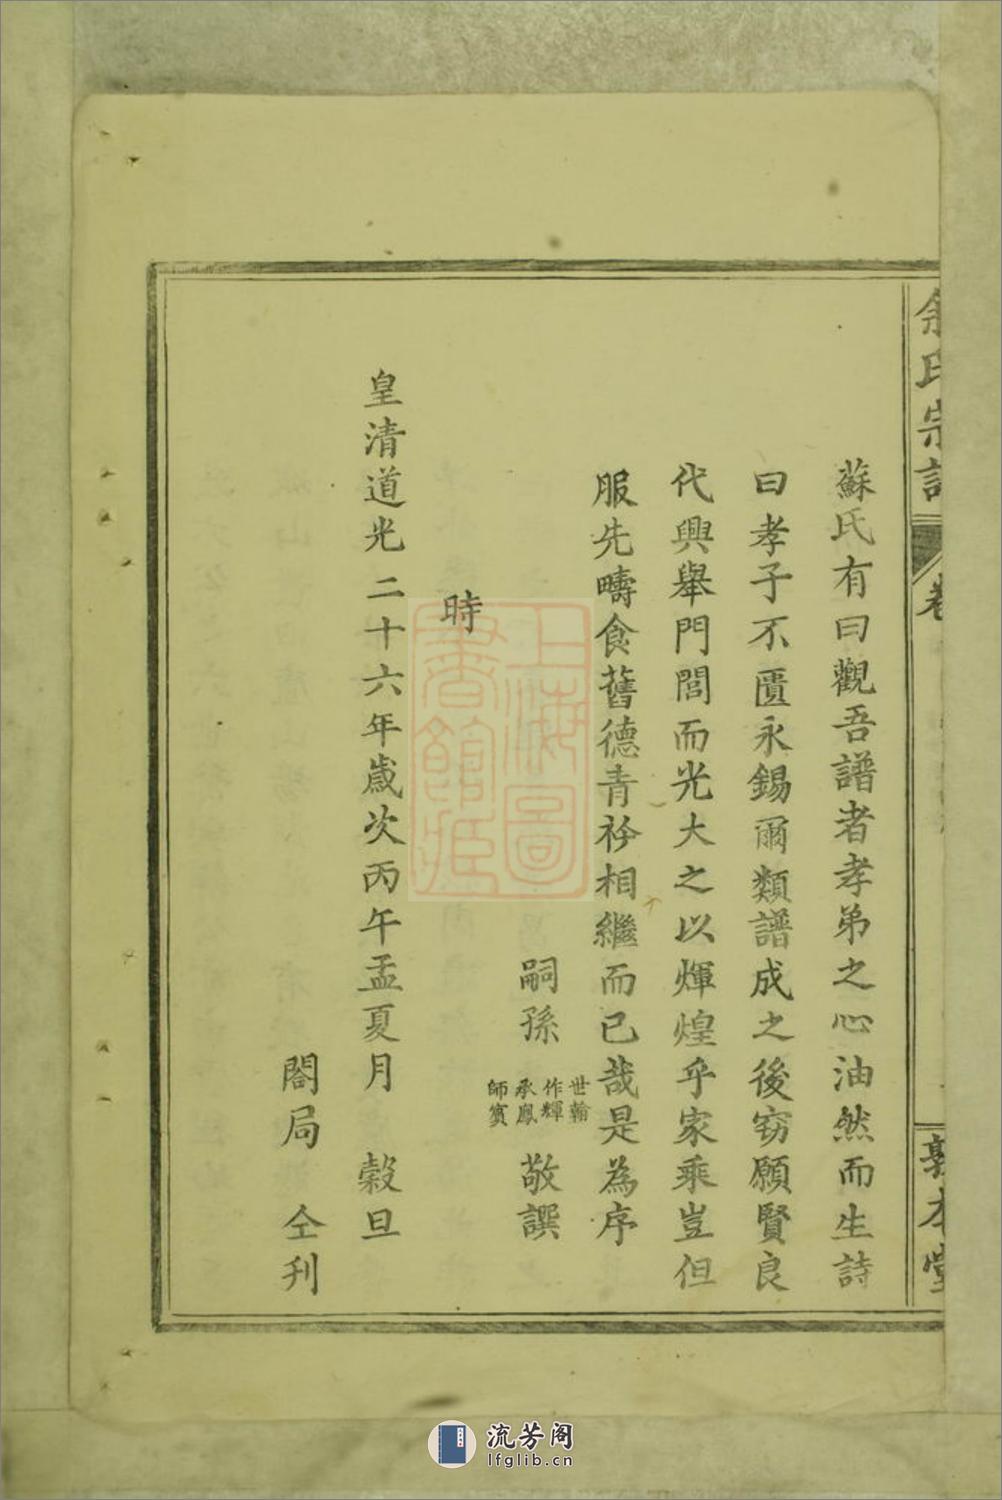 余氏宗譜
卷
敦本堂
蘇氏有曰觀吾譜者孝弟之心油然而生詩
曰孝子不匱永錫爾類譜成之後窃願賢良
代興舉門閭而光大之以煇煌乎家乘豈但
服先疇食舊德青衿相繼而已哉是為序
嗣孫 世翰 作輝 承鳳 師賓 敬譔
時
皇清道光二十六年歲次丙午孟夏月 穀旦
閤局 仝刋
上海圖
書館藏
流芳阁
lfglib.cn